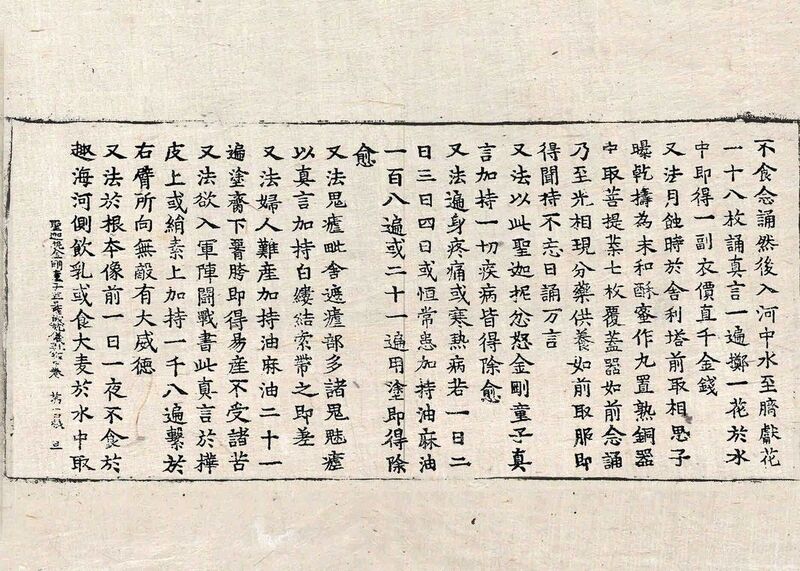 不食念誦然後入河中水至臍獻花
一十八枚誦真言一遍擲一花於水
中即得一副衣價直千金錢
又法月蝕時於舍利塔前取相思子
曝乾擣為末和酥蜜作丸置熟銅器
中取菩提葉七枚覆蓋器如前念誦
乃至光相現分藥供養如前取服即
得聞持不忘日誦万言
又法以此聖迦抳忿怒金剛童子真
言加持一切疾病皆得除愈
又法遍身疼痛或寒熱病若一日二
日三日四日或恒常患加持油麻油
一百八遍或二十一遍用塗即得除
愈
又法鬼瘧毗舍遮瘧部多諸鬼魅瘧
以真言加持白縷結索帶之即差
又法婦人難産加持油麻油二十一
遍塗齎下即得易産不受諸苦
又法欲入軍陣鬪戰書此真言於樺
皮上或絹素上加持一千八遍繫於
右臂所向無敵有大威德
又法於根本像前一日一夜不食於
趣海河側飲乳或食大麦於水中取
聖迦抳金剛童子